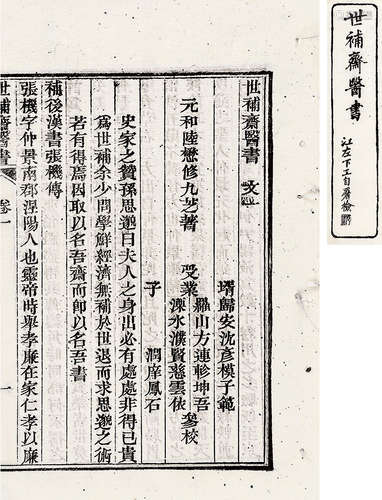 世補齋醫書
江左下工自署檢
世補齋醫書 文
壻歸安沈彥模子範
元和陸懋修九芝著 受業 羅山方連軫坤吾
溧水濮賢慈雲依 參校
子 潤庠鳳石
史家之贊孫思邈曰夫人之身出必有處處非得已貴
爲世補余少問學鮮經濟無補於世退而求思邈之術
若有得焉因取以名吾齋而即以名吾書
補後漢書張機傳
張機字仲景南郡涅陽人也靈帝時舉孝廉在家仁孝以廉
世補齋醫書 卷一 一